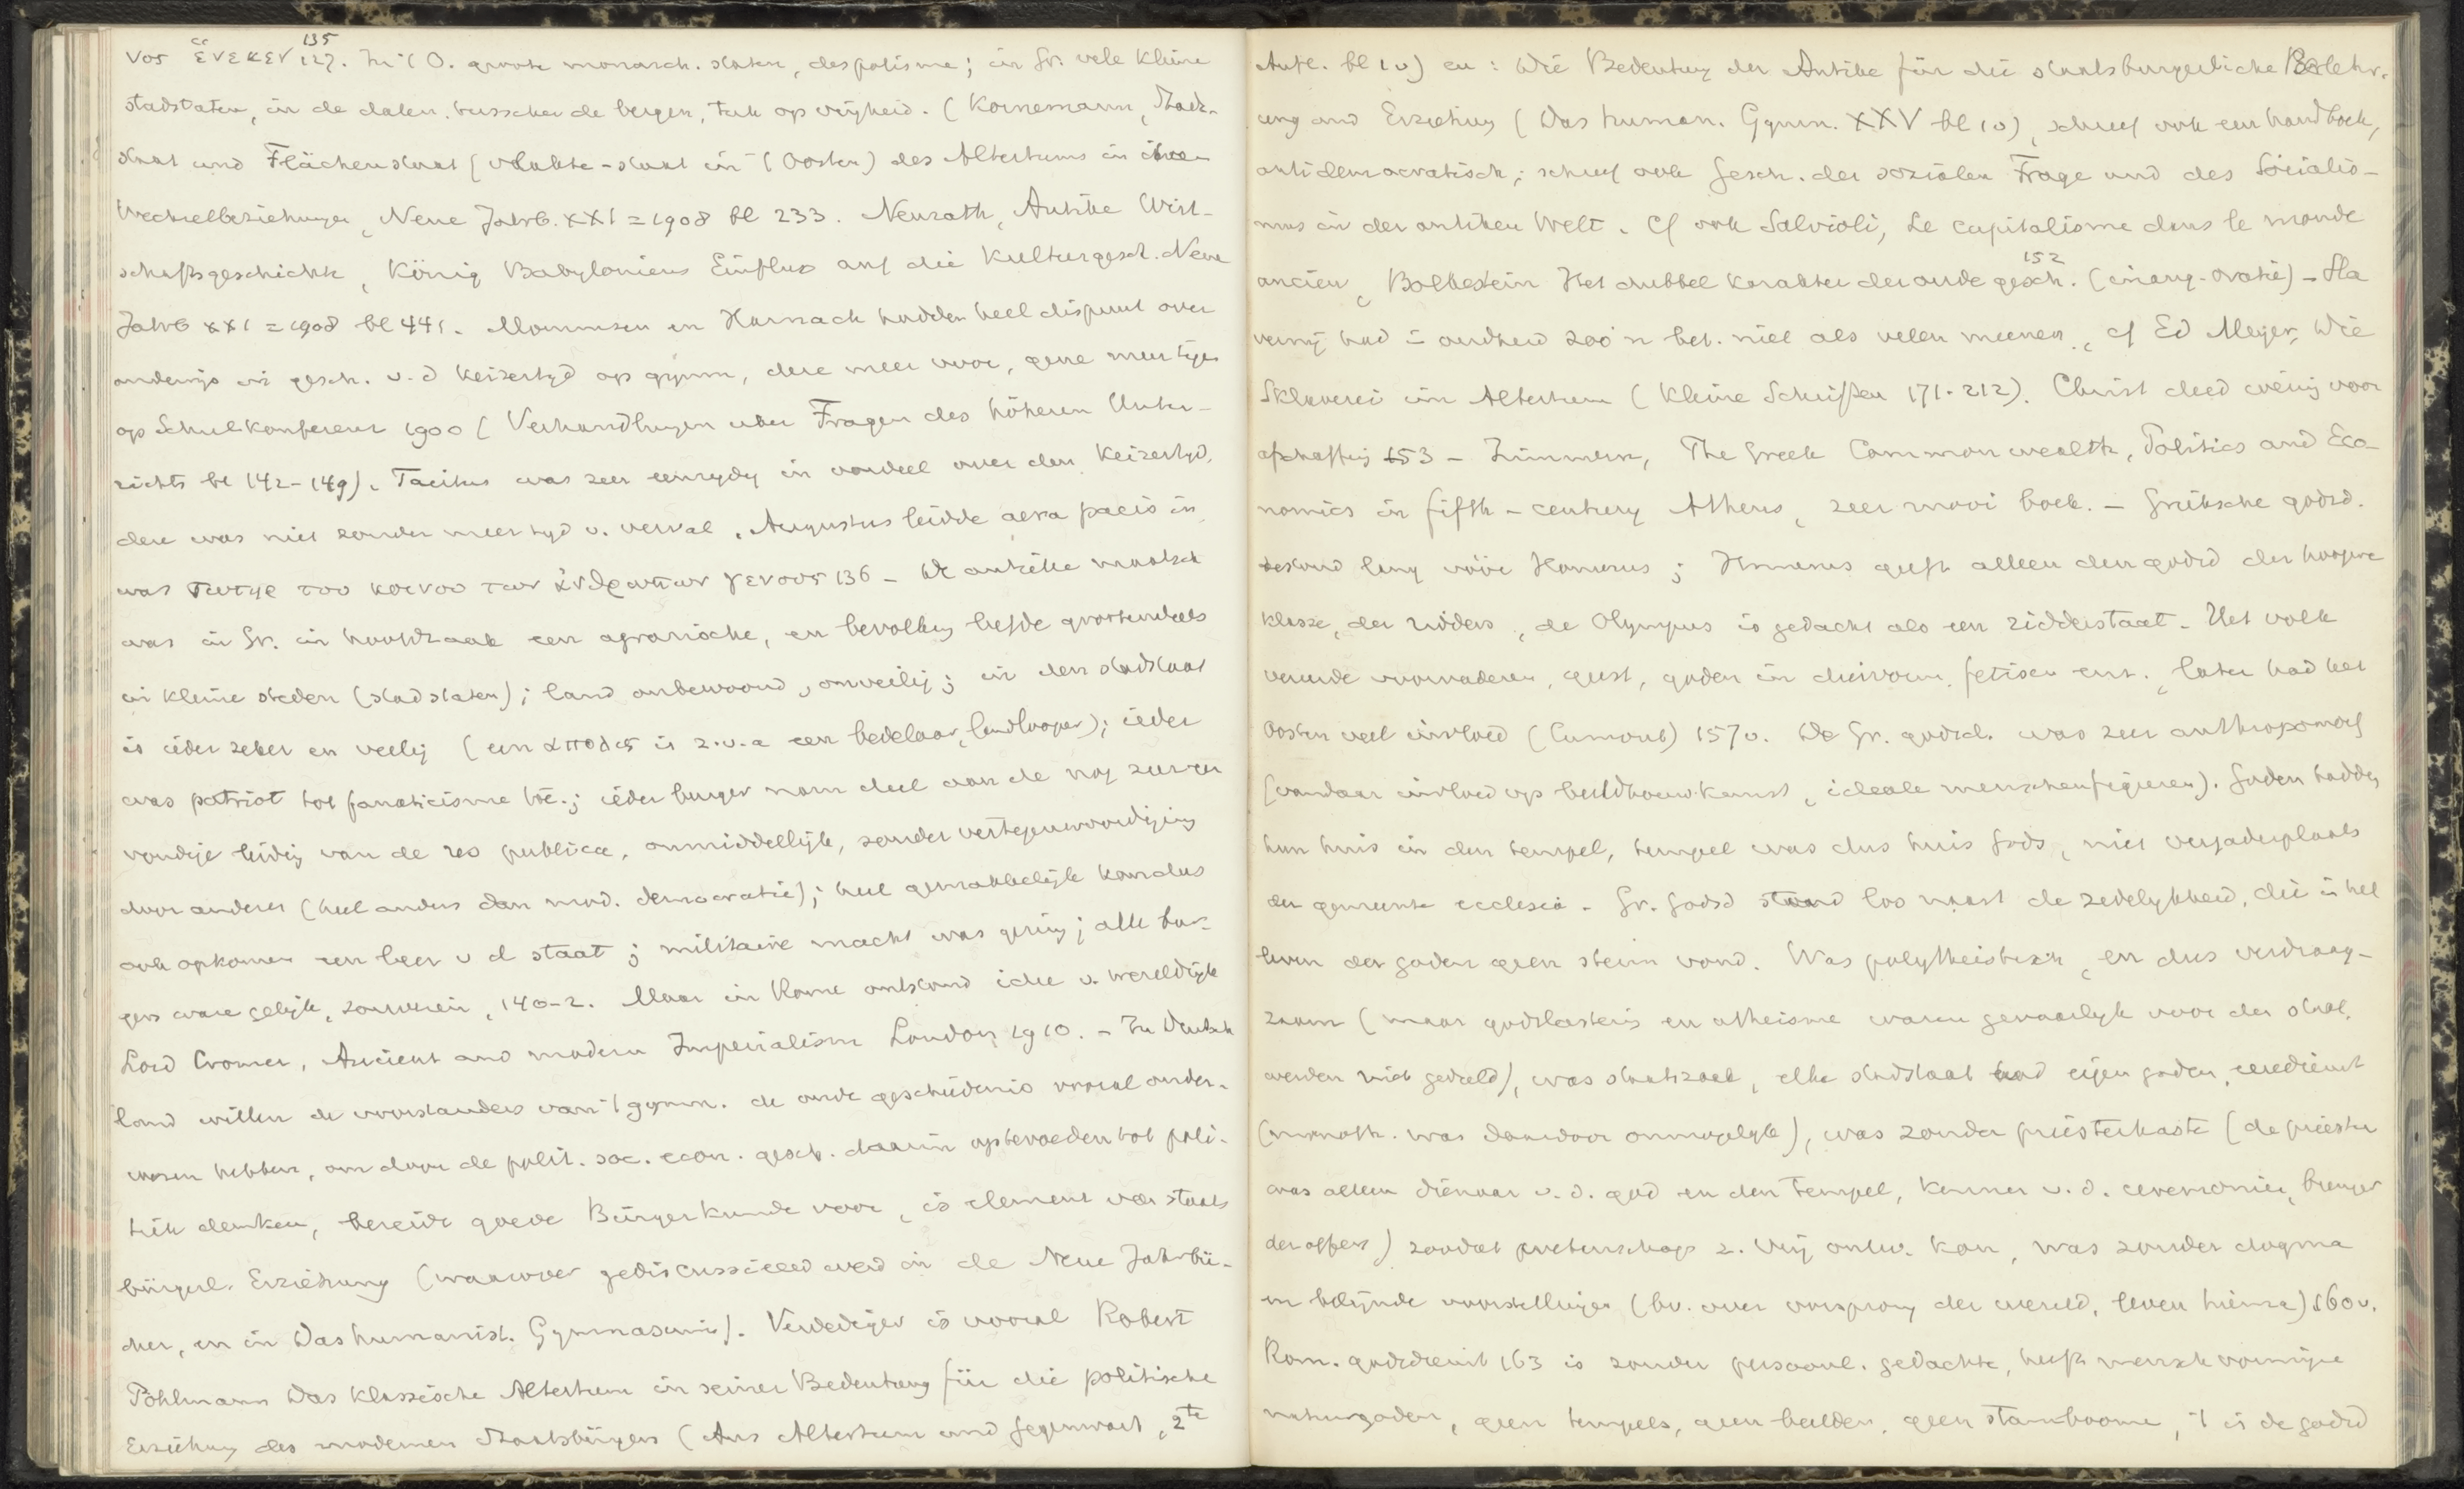 vos ἕνεκεν 127. 135 In 't O. groote monarch. staten, despotisme; in Gr. vele kleine
stadstaten, in de dalen tusschen de bergen, tuk op vrijheid. (Kornemann, Stadt-
staat und Flächenstaat (vlakte-staat in 't Oosten) des Altertums in ihren
Wechselbeziehungen, Neue Jahrb. XXI = 1908 bl 233. Neurath, Antike Wirt-
schaftsgeschichte, König Babyloniens Einfluss auf die Kulturgesch. Neue
Jahrb XXI = 1908 bl 441. Mommsen en Harnack hadden heel dispuut over
onderwijs in gesch. v. d keizertyd op gymn, deze meer voor, gene meer tegen
op Schulkonferenz 1900 (Verhandlungen über Fragen des höheren Unter-
richts bl 142-149). Tacitus was zeer eenzydig in oordeel over den keizertyd,
deze was niet zonder meer tyd v. verval. Augustus leidde aera pacis in,
was σωτηρ του κοινου των ἀνθρωπων γενους 136 - De antieke maatsch
was in Gr. in hoofdzaak een agrarische, en bevolking leefde grootendeels
in kleine steden (stadstaten); land onbewoond, onveilig; in den stadstaat
is ieder zeker en veilig (een ἀπολις is z.v.a een bedelaar, landlooper); ieder
was patriot tot fanaticisme toe; ieder burger nam deel aan de nog zeer een
voudige leiding van de res publica, onmiddellijk, zonder vertegenwoordiging
door anderen (heel anders dan mod. democratie); heel gemakkelijk kon dus
ook opkomen een leer v d staat; militaire macht was gering; alle bur-
gers ware gelijk, souverein, 140-2. Maar in Rome ontstond idee v. wereldrijk
Lord Cromer, Ancient and modern Imperialism London 1910. - In Duitsch
land willen de voorstanders van 't gymn. de oude geschiedenis vooral onder-
wezen hebben, om door de polit. soc. econ. gesch. daarin op te voeden tot poli-
tiek denken, bereidt goede Bürgerkunde voor, is element van staats
bürgerl. Erziehung (waarover gediscussieerd werd in de Neue Jahrbü-
cher, en in Das humanist. Gymnasium). Verdediger is vooral Robert
Pöhlmann Das klassische Altertum in seiner Bedeutung für die politische
Erziehung des modernen Staatsbürgers (Aus Altertum und Gegenwart, 2te
Aufl. bl 10) en: Die Bedeutung der Antike für die staatsburgerliche Belehr-
ung und Erziehung (Das human. Gymn. XXV bl 10), schreef ook een handboek,
antidemocratisch; schreef ook Gesch. der sozialen Frage und des Sozialis-
mus in der antiken Welt. Cf ook Salvioli, Le capitalisme dans le monde
ancien, Bolkestein Het dubbel karakter der oude gesch. 152 (inaug-oratie) - Sla
verny had in oudheid zoo'n bet. niet als velen meenen, cf Ed Meyer, Die
Sklaverei im Altertum (Kleine Schriften 171-212). Christ deed weinig voor
afschaffing 153 - Zimmern, The Greek Commonwealth, Politics and Eco-
nomics in fifth-century Athens, zeer mooi boek. - Grieksche godsd.
bestond lang vóór Homerus; Homerus geeft alleen den godsd der hoogere
klasse, der ridders, de Olympus is gedacht als een ridderstaat - Het volk
vereerde voorvaderen, geest, goden in diervorm, fetisen enz., later had het
Oosten veel invloed (Cumont) 157v. De Gr. godsd. was zeer anthropomorf
(vandaar invloed op beeldhouwkunst, ideale menschenfiguren). Goden hadden
hun huis in den tempel, tempel was dus huis Gods, niet vergaderplaats
der gemeente ecclesia - Gr. Godsd stond los naast de zedelykheid, die in het
leven der goden geen steun vond. Was polytheistisch, en dus verdraag-
zaam (maar godslastering en atheisme waren gevaarlyk voor den staat,
werden niet geduld), was staatszaak, elke stadstaat had eigen goden, eeredienst
(monoth. was daardoor onmogelyk), was zonder priesterkaste (de priester
was alleen dienaar v. d. god en den tempel, kenner v. d. ceremoniën, brenger
der offers) zoodat wetenschap z. vrij ontw. kon, was zonder dogma
en belijnde voorstellingen (bv. over oorsprong der wereld, leven hierna) 160v.
Rom. godsdienst 163 is zonder persoonl. gedachte, heeft menschvormige
natuurgoden, geen tempels, geen beelden, geen stamboome, 't is de godsd